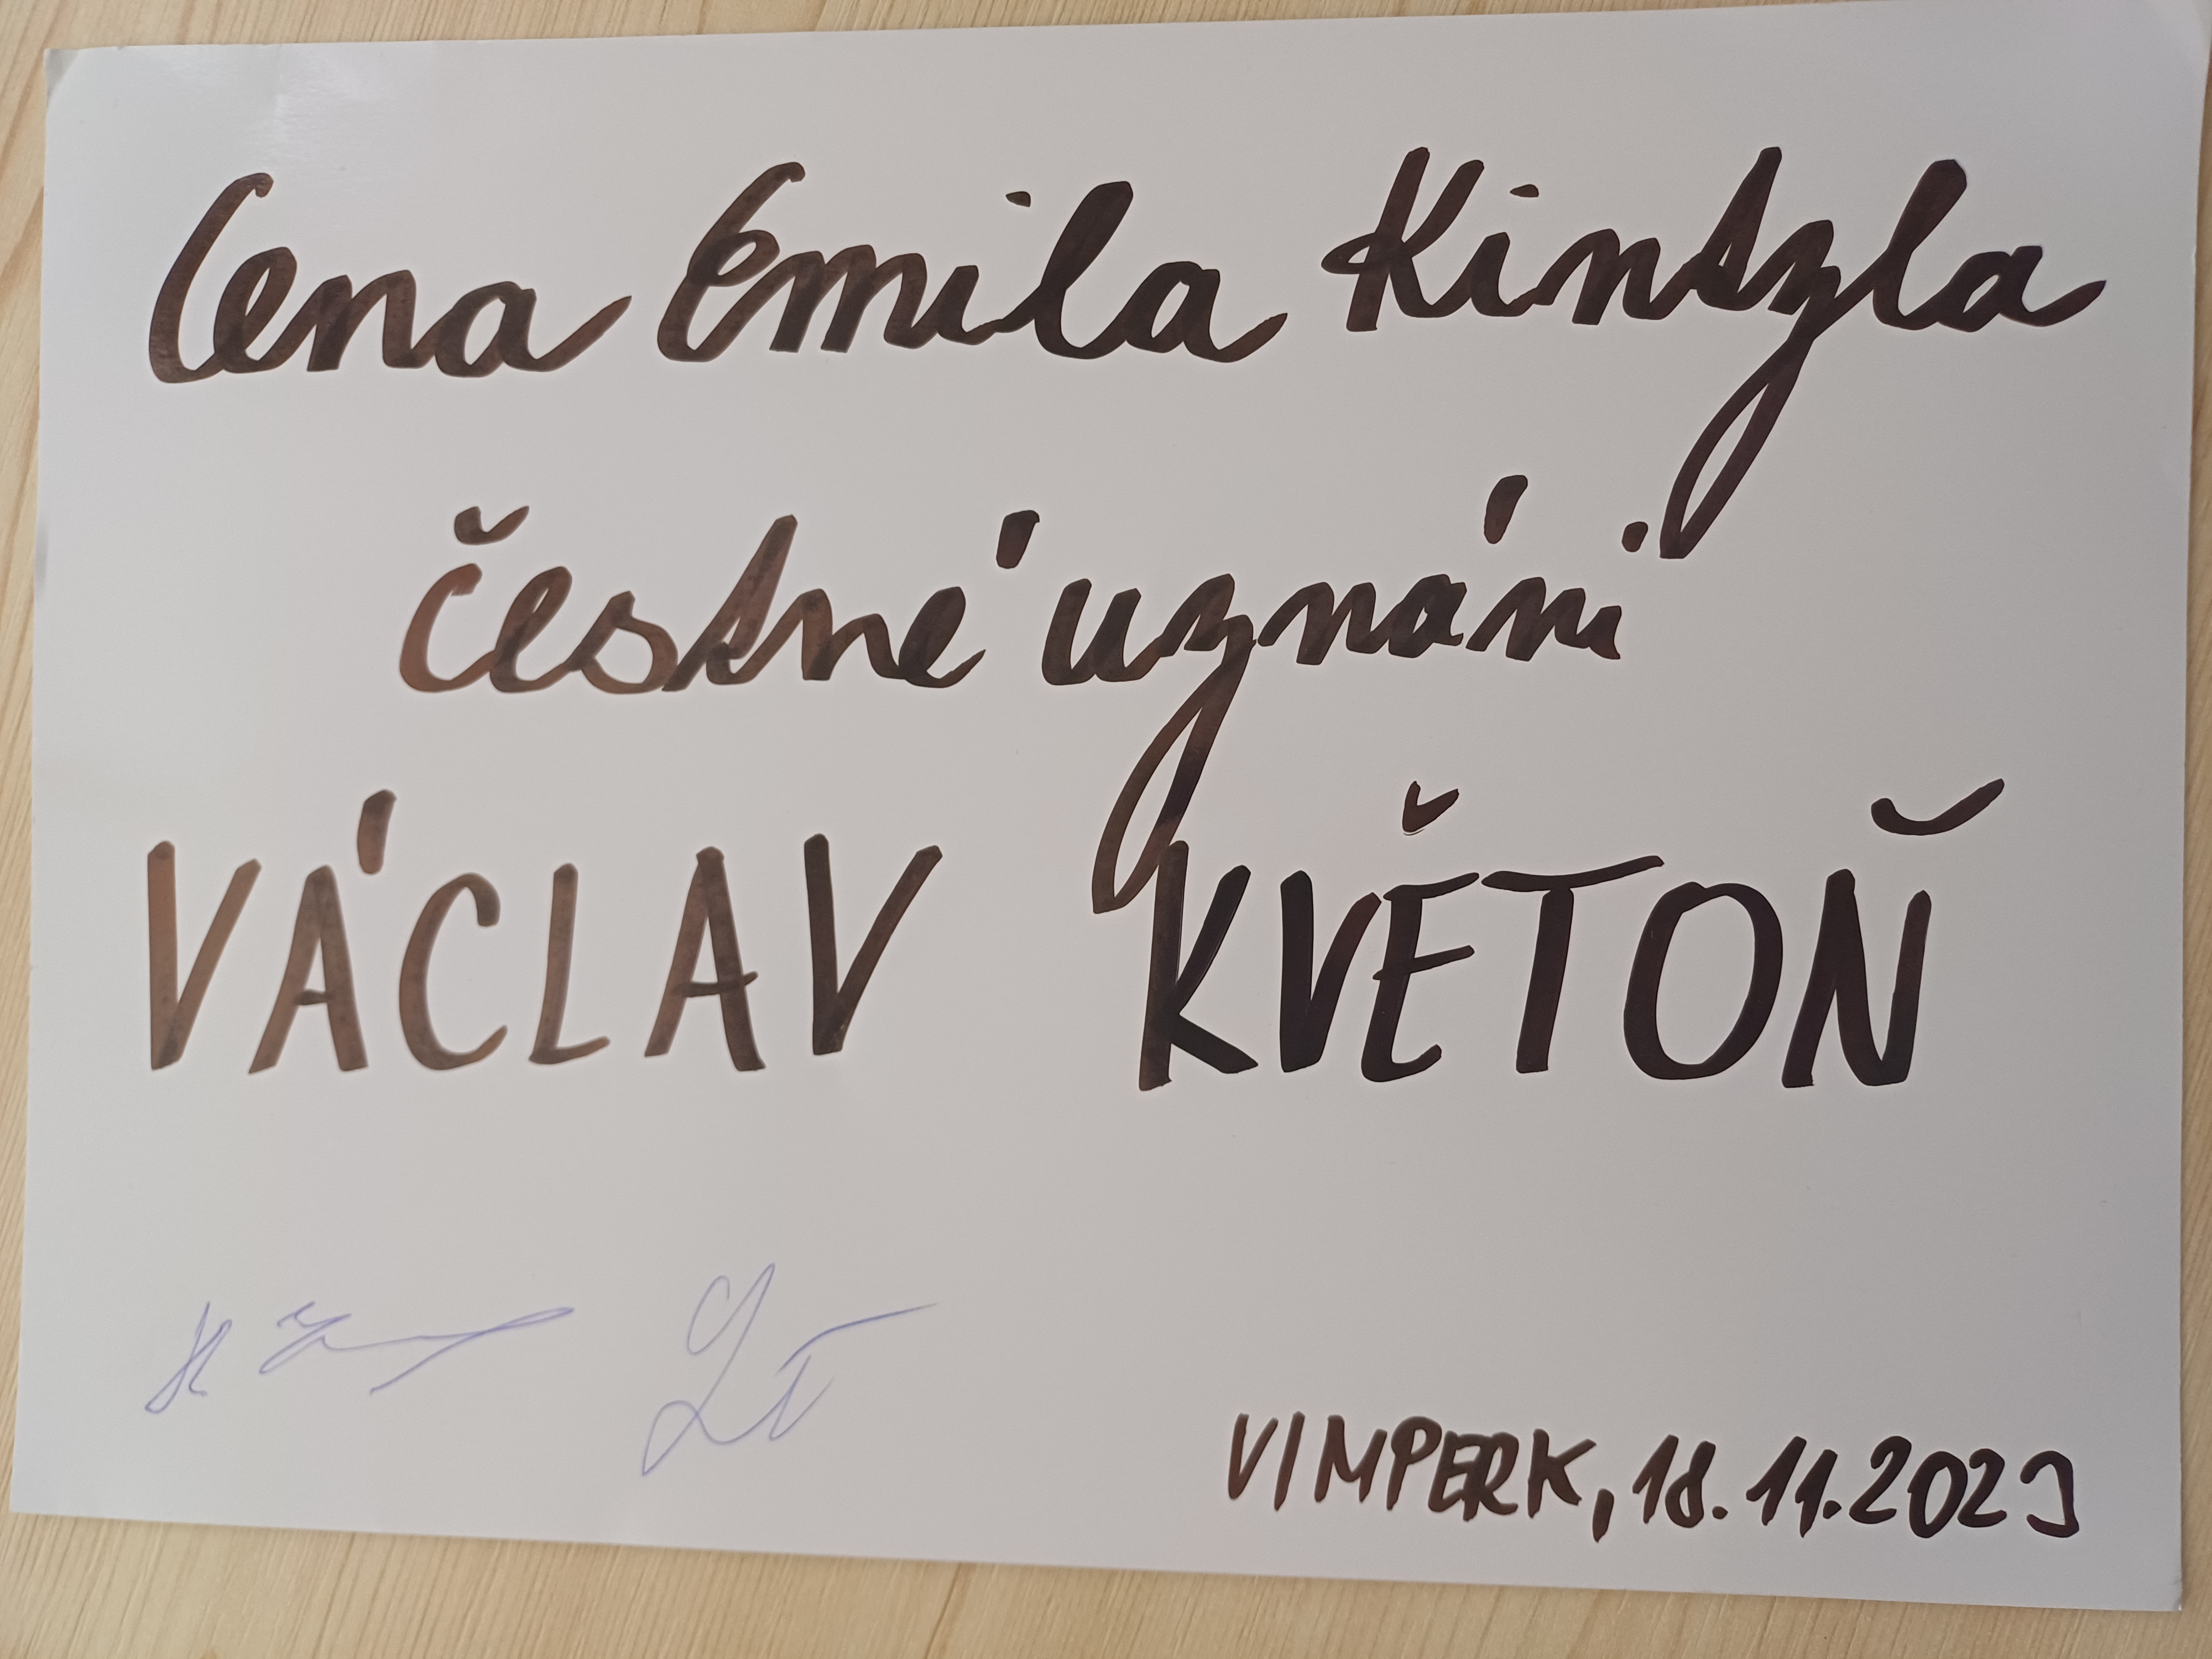 Cena Emila Kintzla
čestné uznáni
VÁCLAV KVĚTOŇ
VIMPERK, 18.11.2023